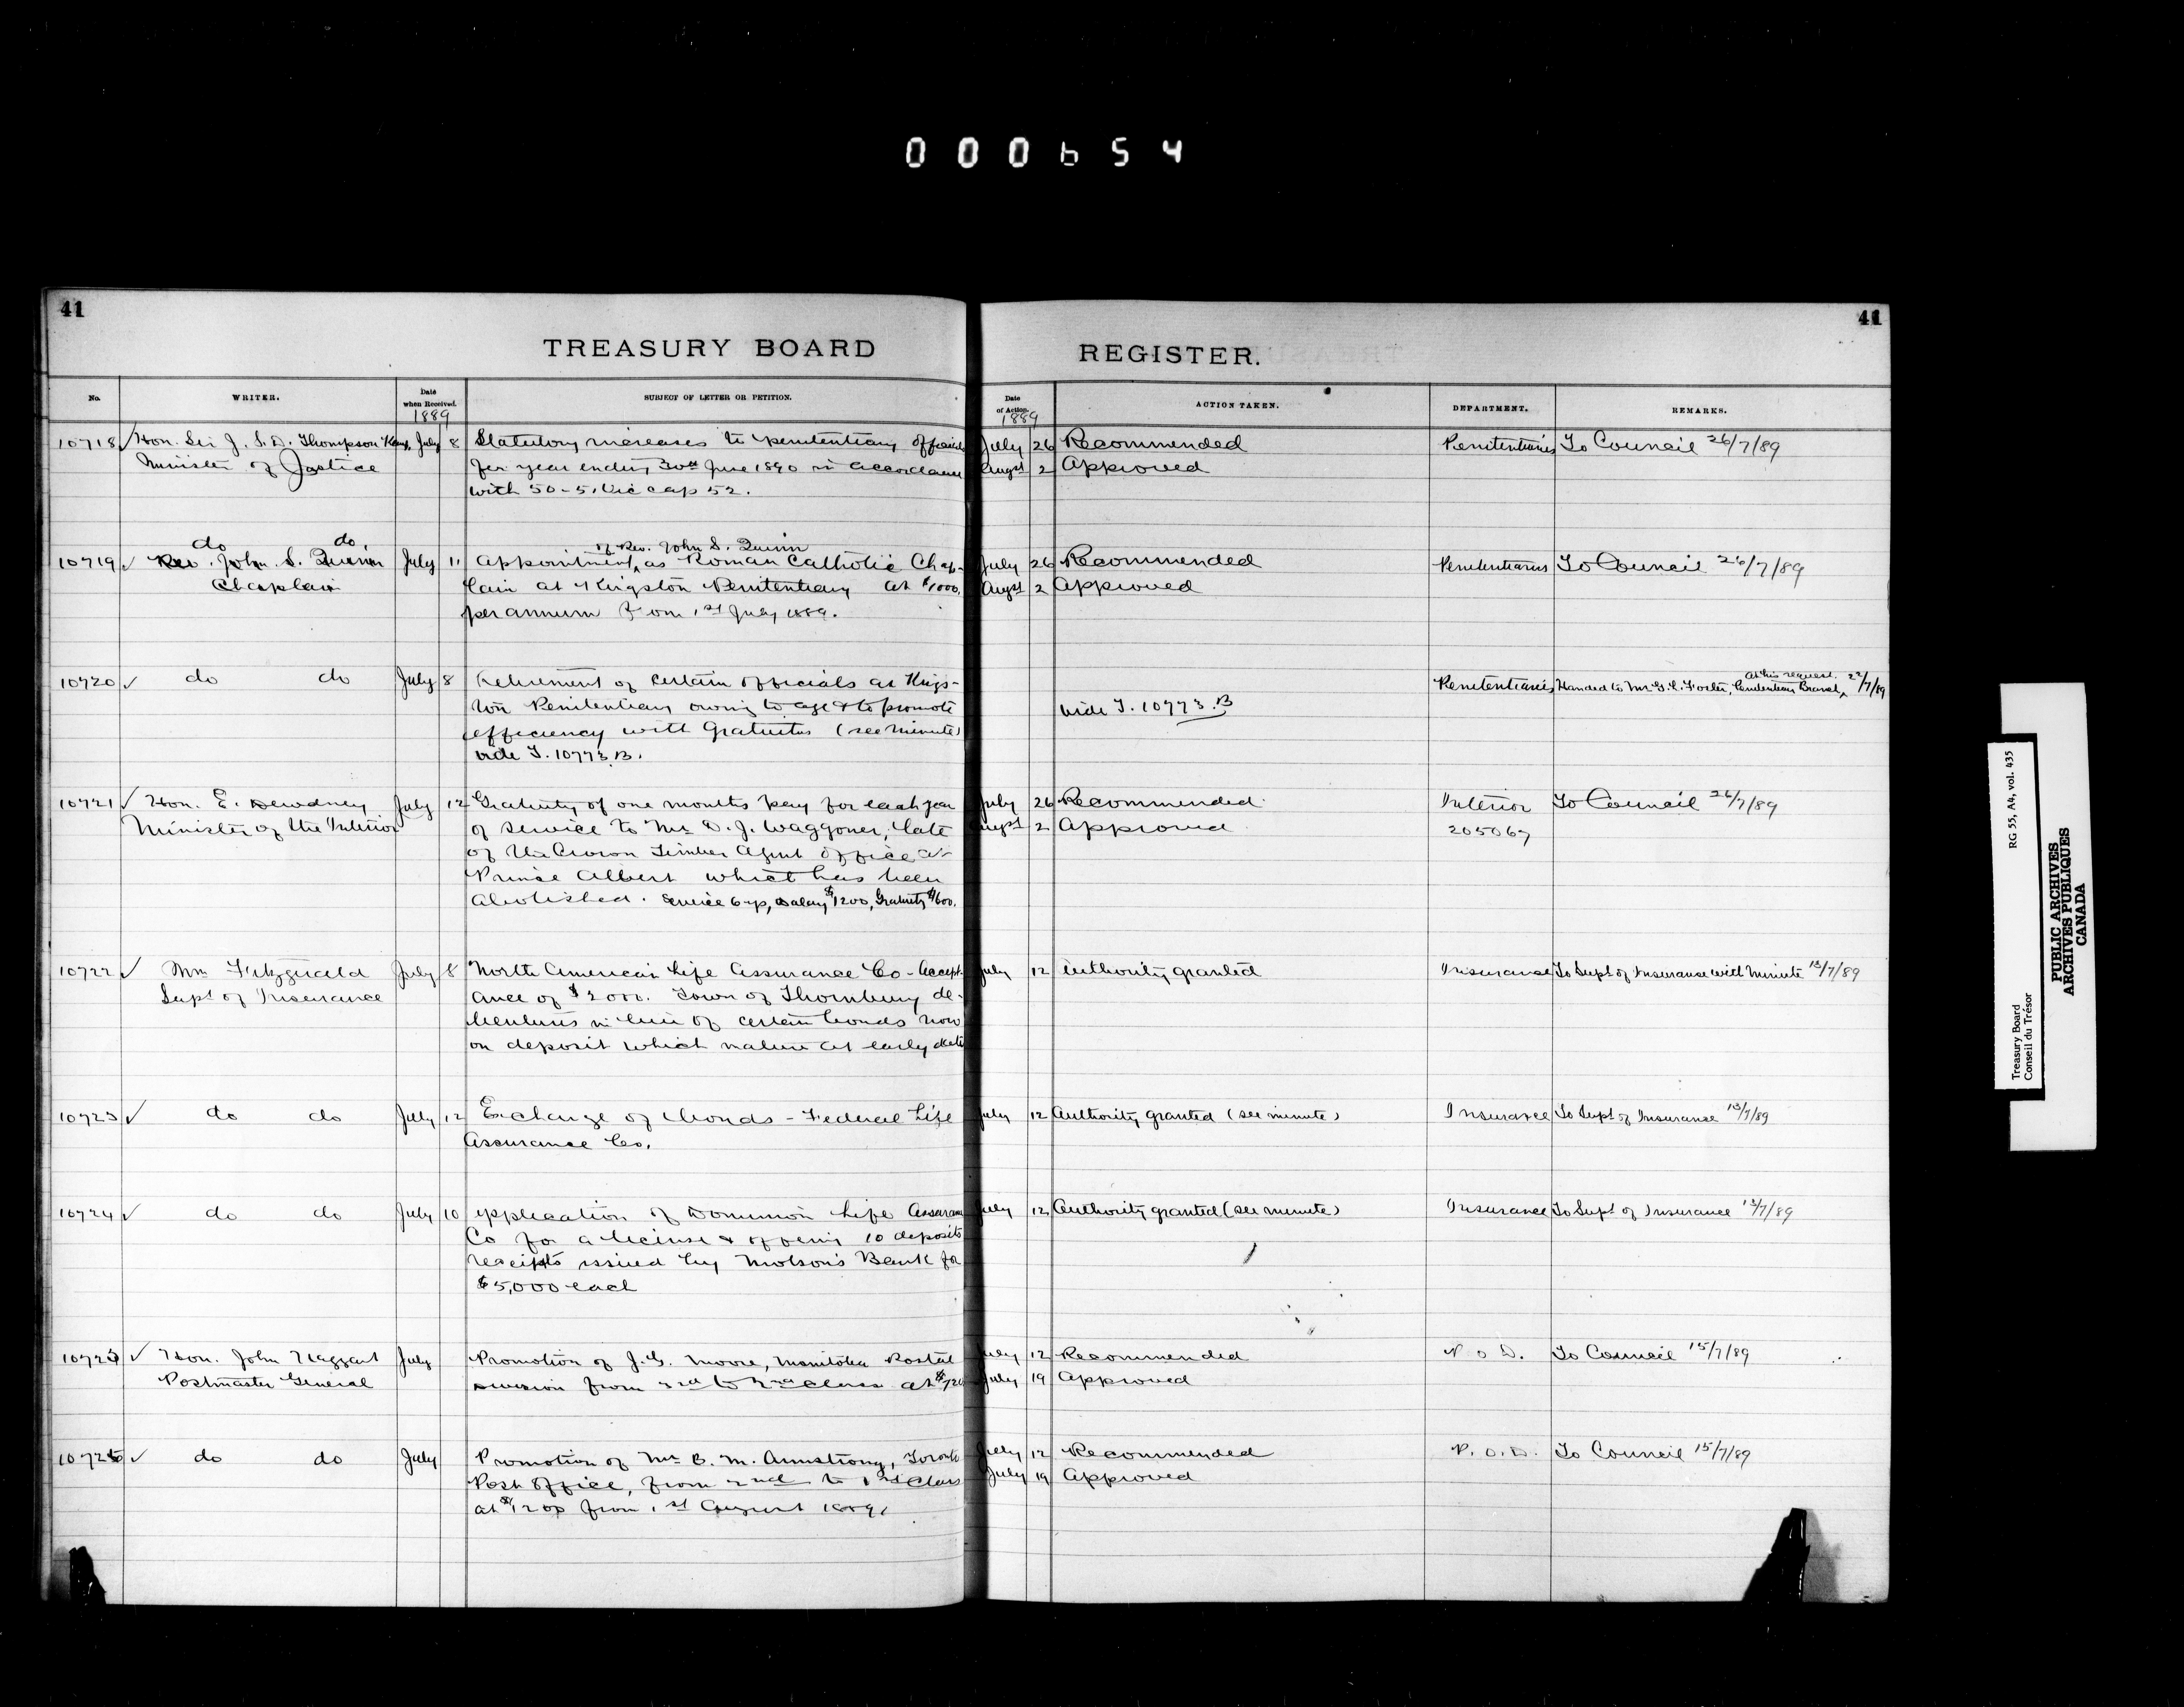 000654
41
41
TREASURY BOARD
REGISTER.
No.
WRITER.
Date when Received.
1889
SUBJECT OF LETTER OR PETITION.
Date of Action.
1889
ACTION TAKEN.
DEPARTMENT.
REMARKS.
10718 ✓ Hon. Sir J. S. D. Thompson July 8 Statutory increases to penitentiary officials July 26 Recommended Penitentiaries To Council 26/7/89
Minister of Justice for year ending 30th June 1890 in accordance Augst 2 Approved
with 50-51 Vic cap 52.
do do of Rev. John S. Quinn
10719 ✓ Rev. John S. Quinn July 11 Appointment ^ as Roman Catholic Chap- July 26 Recommended Penitentiaries To Council 26/7/89
Chaplain lain at Kingston Penitentiary at $1000. Augst 2 Approved
per annum from 1st July 1889.
At his request.
10720 ✓ do do July 8 Retirement of certain officials at Kings- Penitentiaries Handed to Mr G. L. Foster, Penitentiary Branch, ^ 22/7/89
ton Penitentiary owing to age & to promote vide T. 10773.B
efficiency with gratuities (see minute)
vide T. 10773.B.
10721 ✓ Hon. E. Dewdney July 12 Gratuity of one months pay for each year July 26 Recommended Interior To Council 26/7/89
Minister of the Interior of service to Mr D. J. Waggoner, late Augst 2 Approved 205067
of the Crown Timber Agent office at
Prince Albert which has been
abolished. Service 6 yrs, Salary $1200, Gratuity $600.
10722 ✓ Wm Fitzgerald July 8 North American Life Assurance Co - Accept- July 12 Authority granted Insurance To Supt of Insurance with minute 13/7/89
Supt of Insurance ance of $2000. Town of Thornbury de-
bentures in lieu of certain bonds now
on deposit which mature at early date
10723 ✓ do do July 12 Exchange of bonds - Federal Life July 12 Authority granted (see minute) Insurance To Supt of Insurance 13/7/89
Assurance Co.
10724 ✓ do do July 10 Application of Dominion Life Assurance July 12 Authority granted (see minute) Insurance To Supt of Insurance 13/7/89
Co for a license & offering 10 deposits
receipts issued by Molson's Bank for
$5,000 each
10725 ✓ Hon. John Haggart July Promotion of J. G. Moore, Manitoba Postal July 12 Recommended P O D. To Council 15/7/89
Postmaster General Division from 3rd to 2nd class at July 19 Approved
✓ do do July Promotion of Mr B. M. Armstrong, Toronto July 12 Recommended P. O. D. To Council 15/7/89
Post Office, from 2nd to 1st Class July 19 Approved
at $1200 from 1st August 1889.
RG 55, A4, vol. 435
Treasury Board
Conseil du Trésor
PUBLIC ARCHIVES
ARCHIVES PUBLIQUES
CANADA